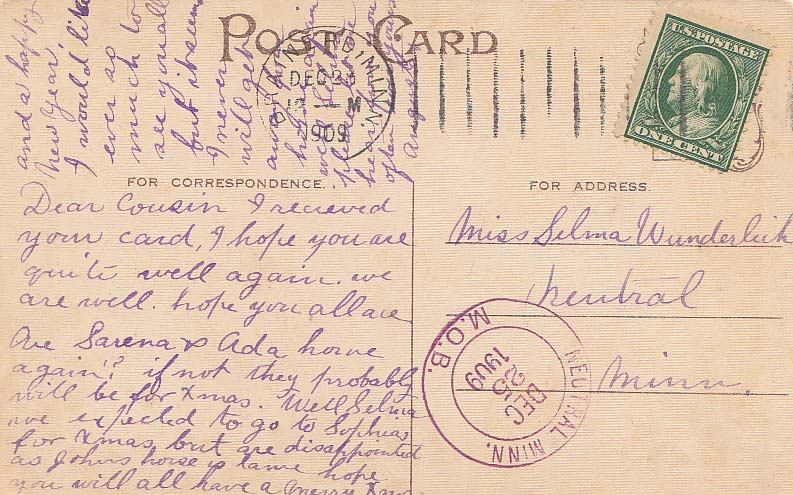 POST CARD
BRAINERD MINN.
DEC 23
12 — M
1909
U.S. POSTAGE
ONE CENT
FOR CORRESPONDENCE.
FOR ADDRESS.
Dear Cousin I recieved
your card, I hope you are
quite well again. we
are well. hope you all are
Are Sarena & Ada home
again? if not they probably
will be for Xmas. Well Selma
we expected to go to Sophias
for Xmas but are disappointed
as Johns horse is lame hope
you will all have a merry Xmas
and a happy
New Year.
I would like
ever so
much to
see you all
but it seems
I never
will get
away
often
Miss Selma Wunderlich
Neutral
Minn.
NEUTRAL MINN.
DEC
25
1909
M.O.B.